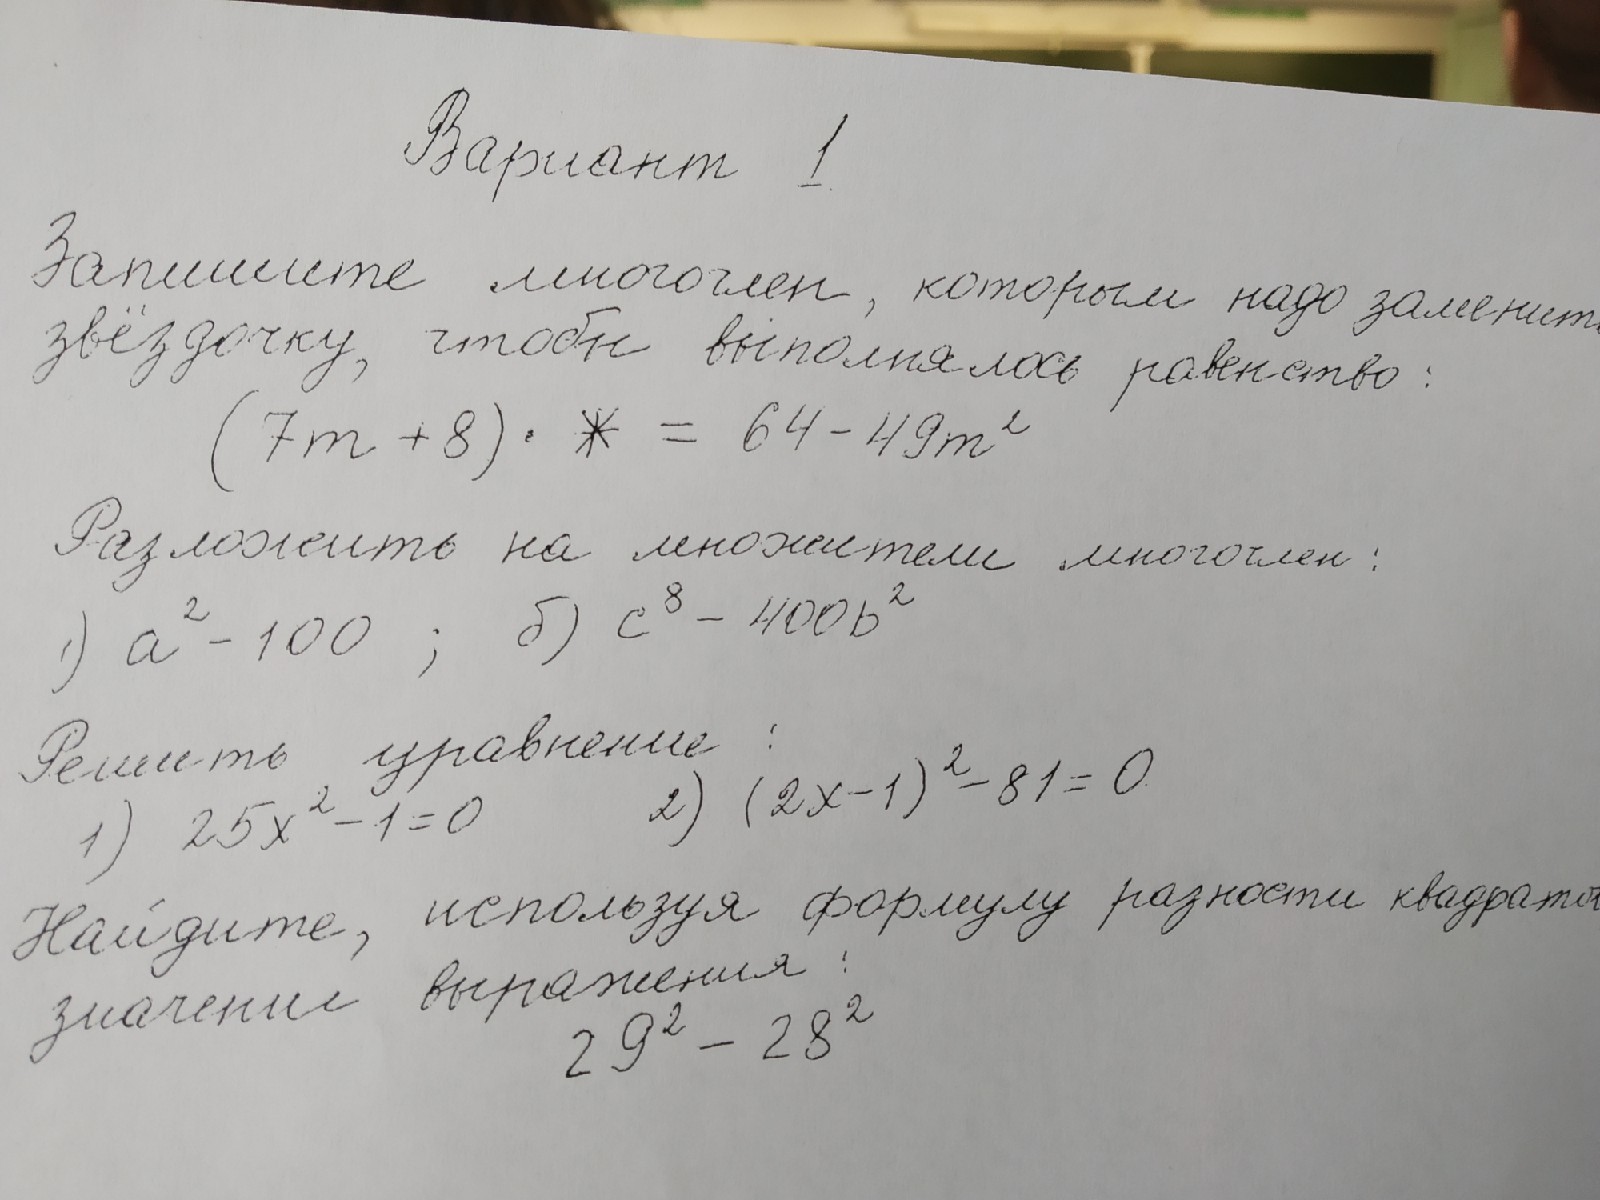 Вариант 1
Запишите многочлен, которым надо заменить
звёздочку, чтобы выполнялось равенство:
(7m + 8) · * = 64 - 49m²
Разложить на множители многочлен:
1) a² - 100 ; б) c⁸ - 400b²
Решить уравнение :
1) 25x² - 1 = 0 2) (2x - 1)² - 81 = 0
Найдите, используя формулу разности квадратов
значение выражения :
29² - 28²